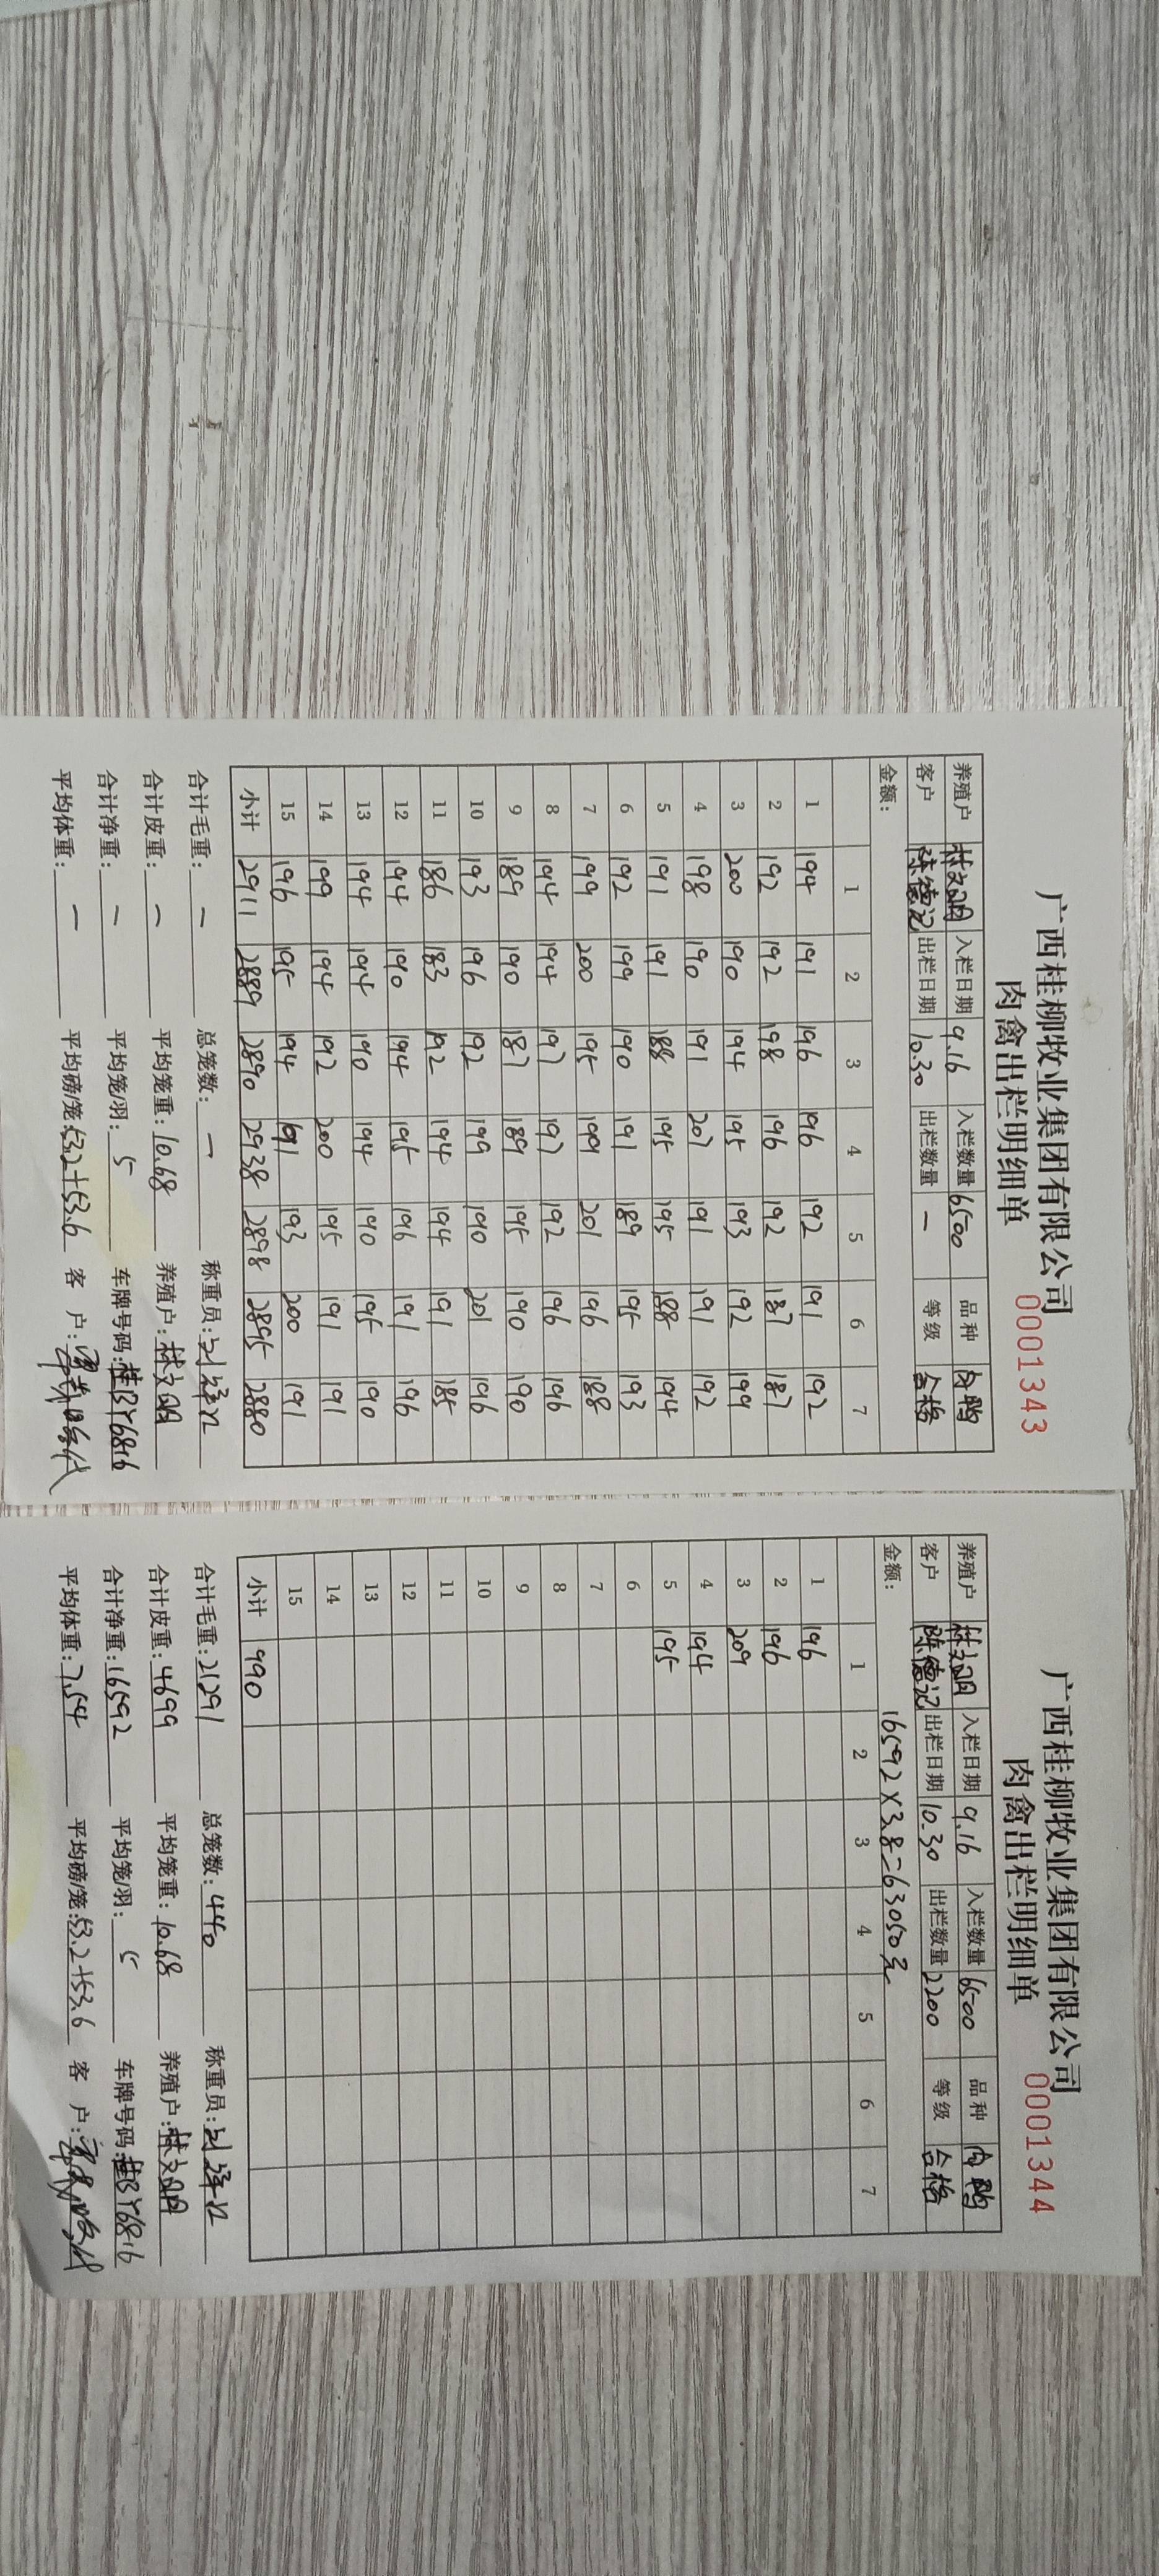 广西桂柳牧业集团有限公司
肉禽出栏明细单
0001343
养殖户 林文明 入栏日期 9.16 入栏数量 6500 品种 肉鸭
客户 陈德记 出栏日期 10.30 出栏数量 — 等级 合格
金额:
1 2 3 4 5 6 7
1 194 191 196 196 192 191 192
2 192 192 198 196 192 187 187
3 200 190 194 195 193 192 199
4 198 190 191 201 191 191 192
5 191 191 188 195 195 188 194
6 192 199 190 191 189 195 193
7 199 200 195 199 201 196 188
8 194 194 197 197 192 196 196
9 189 190 187 189 195 190 190
10 193 196 192 199 190 201 196
11 186 183 192 194 194 191 185
12 194 190 194 195 196 191 196
13 194 194 190 194 190 195 190
14 199 194 192 200 195 191 191
15 196 195 194 191 193 200 191
小计 2911 2889 2890 2938 2898 2895 2880
合计毛重: — 总笼数: — 称重员:
合计皮重: — 平均笼重: 10.68 养殖户: 林文明
合计净重: — 平均笼/羽: 5 车牌号码: 桂BY6816
平均体重: — 平均磅/笼: 53.2+53.6 客 户:
广西桂柳牧业集团有限公司
肉禽出栏明细单
0001344
养殖户 林文明 入栏日期 9.16 入栏数量 6500 品种 肉鸭
客户 陈德记 出栏日期 10.30 出栏数量 2200 等级 合格
金额: 16592×3.8=63050元
1 2 3 4 5 6 7
1 196
2 196
3 209
4 194
5 195
6
7
8
9
10
11
12
13
14
15
小计 990
合计毛重: 21291 总笼数: 440 称重员:
合计皮重: 4699 平均笼重: 10.68 养殖户: 林文明
合计净重: 16592 平均笼/羽: 5 车牌号码: 桂BY6816
平均体重: 7.54 平均磅/笼: 53.2+53.6 客 户: